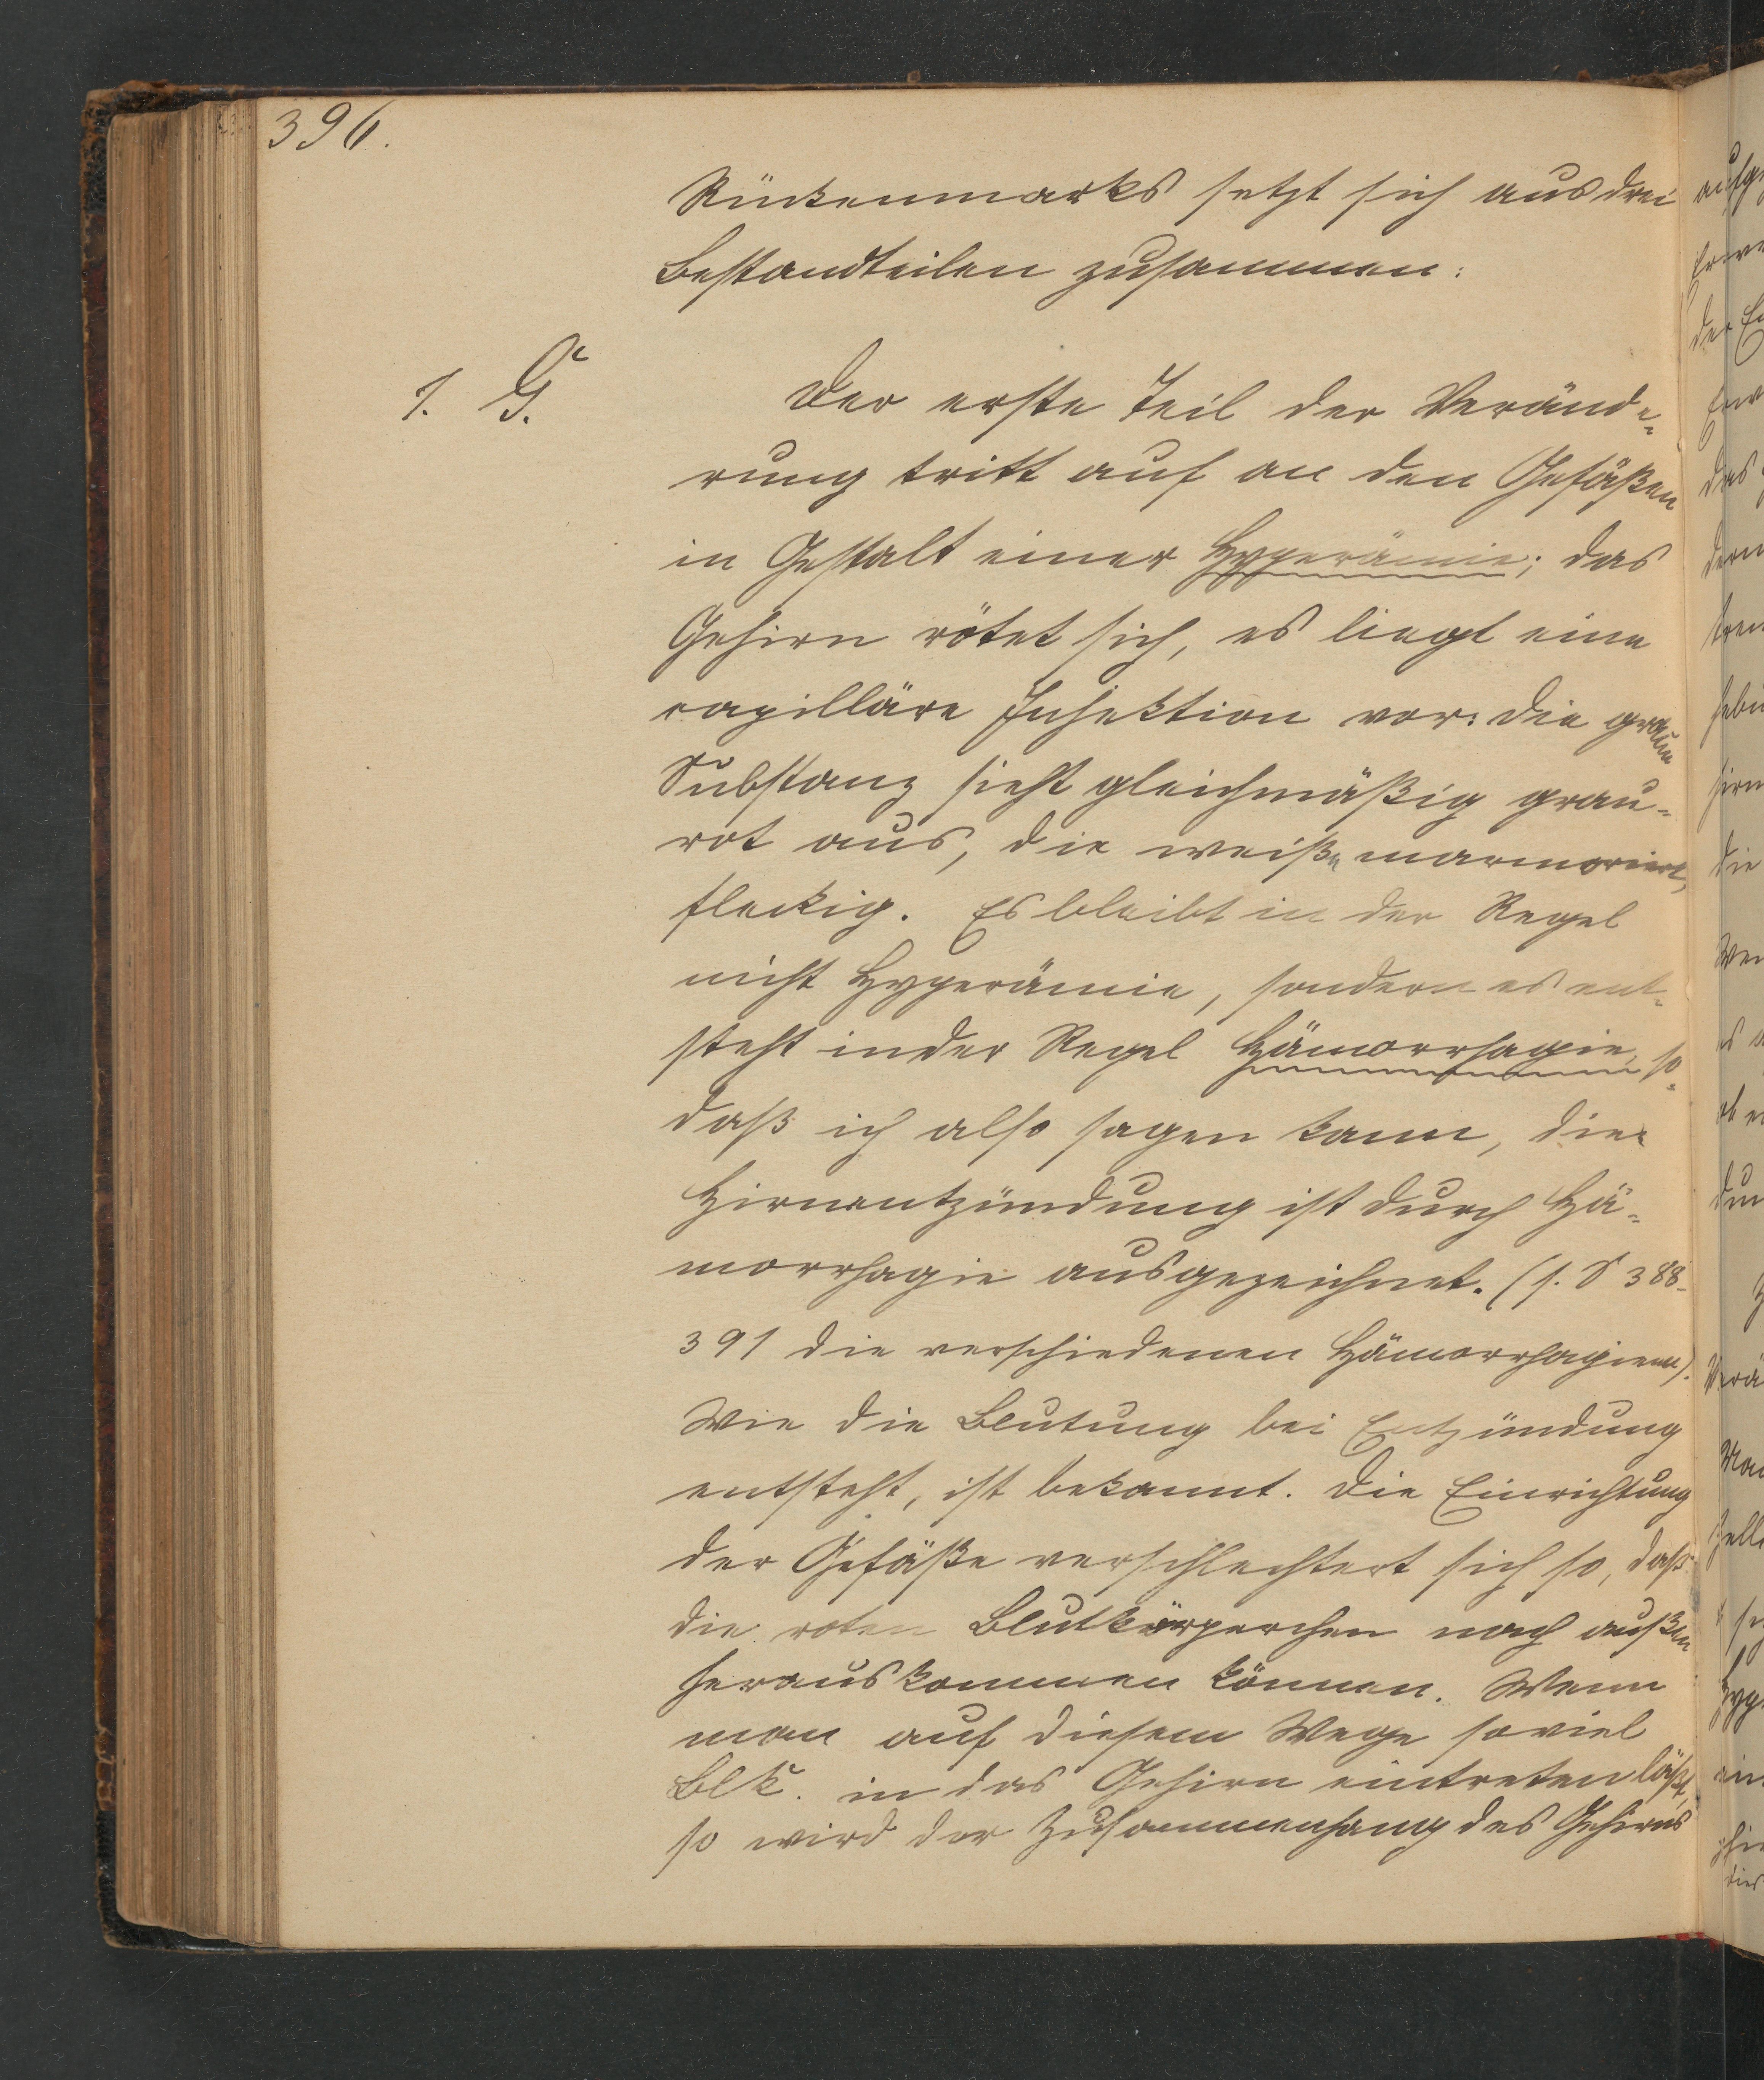 396.
Rückenmarks setzt sich aus drei
Bestandteilen zusammen:
1. G.
Der erste Teil der Verände-
rung tritt auf an den Gefäßen
in Gestalt einer Hyperämie; das
Gehirn rötet sich, es liegt eine
capilläre Injektion vor: die graue
Substanz sieht gleichmäßig grau-
rot aus, die weiße marmoriert,
fleckig. Es bleibt in der Regel
nicht Hyperämie, sondern es ent-
steht in der Regel Hämorrhagie, so-
daß ich also sagen kann, die
Hirnentzündung ist durch Hä-
morrhagie ausgezeichnet. (s. S 388-
391 die verschiedenen Hämorrhagieen).
Wie die Blutung bei Entzündung
entsteht, ist bekannt. Die Einrichtung
der Gefäße verschlechtert sich so, daß
die roten Blutkörperchen nach außen
herauskommen können. Wenn
man auf diesem Wege soviel
Blk. in das Gehirn eintreten läßt,
so wird der Zusammenhang des Gehirns